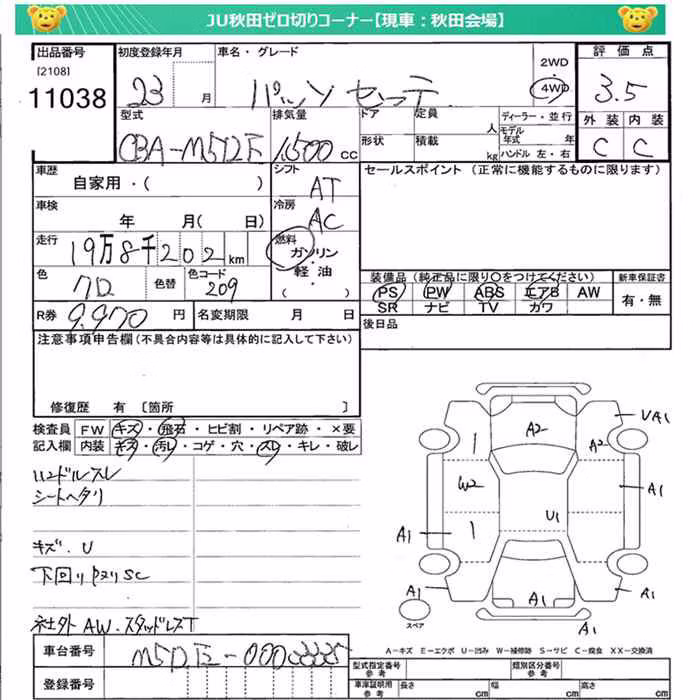 JU秋田ゼロ切りコーナー【現車：秋田会場】
出品番号
[2108]
11038
初度登録年月
23 月
車名・グレード
パッソ セッテ
2WD
4WD
評価点
3.5
外装 内装
C C
型式
CBA-M512E
排気量
1500 cc
ドア
形状
定員 人
積載 kg
ディーラー・並行
モデル年式 年
ハンドル 左・右
車歴
自家用・( )
シフト
AT
セールスポイント（正常に機能するものに限ります）
車検
年 月( 日)
冷房
AC
走行
19万8千202km
燃料
ガソリン
・
軽油
( )
色
クロ
色替
色コード
209
装備品（純正品に限り○をつけてください）
PS PW ABS エアB AW
SR ナビ TV カワ
新車保証書
有・無
R券 9,970 円
名変期限 月 日
後日品
注意事項申告欄（不具合内容等は具体的に記入して下さい）
修復歴 有 〔箇所 〕
検査員
記入欄
FW キズ・飛石・ヒビ割・リペア跡・×要
内装 キズ・汚レ・コゲ・穴・スレ・キレ・破レ
ハンドルスレ
シートヘタリ
キズ.U
下回り内外SC
社外AW.スタッドレスT
A2
A2
VA1
W2
U1
A1
A1
A1
A1
A1
A1
スペア
A-キズ E-エクボ U-凹み W-補修跡 S-サビ C-腐食 XX-交換済
車台番号
登録番号
型式指定番号
参考
類別区分番号
参考
車庫証明用
参考
長さ cm
幅 cm
高さ cm